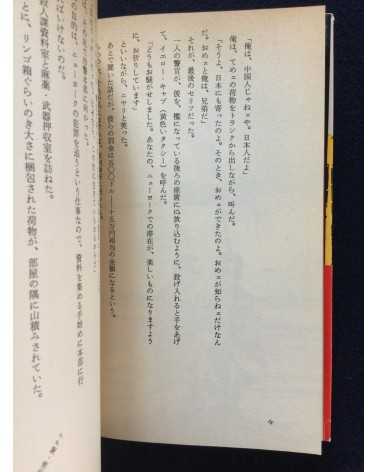 「俺は、中国人じゃねェや。日本人だよ」
俺は、てめェの荷物をトランクから出しながら、叫んだ。
「そうよ。日本にも寄ったのよ。そのとき、おめェができたのよ。おめェが知らねェだけなん
だ。おめェと俺は、兄弟だ」
それが、最後のセリフだった。
一人の警官が、彼を、檻になっている後ろの座席にぬり込むように、投げ入れると手をあげ
て、イエロー・キャブ（黄色いタクシー）を呼んだ。
「どうもお騒がせしました。あなたの、ニューヨークでの滞在が、楽しいものになりますよう
に、お祈りしています」
といいながら、ニヤリと笑った。
の目的は、ニューヨークの犯罪を追うという仕事なので、資料を集める手始めに本部に行
ばいけないのだ。
人課資料室と麻薬、武器押収室を訪ねた。
とに、リンゴ箱ぐらいの大きさに梱包された荷物が、部屋の隅に山積みされていた。